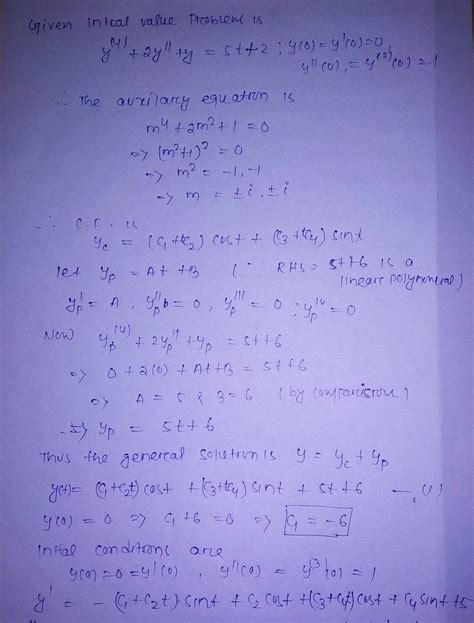 Given Initial value Problem is
y⁽⁴⁾ + 2y'' + y = 5t+2 ; y(0) = y'(0) = 0,
y''(0), = y⁽³⁾(0) = 1
∴ The auxilary equation is
m⁴ + 2m² + 1 = 0
=> (m²+1)² = 0
=> m² = -1, -1
=> m = ±i, ±i
∴ C.F. is
y_c = (C₁+tC₂) cost + (C₃+tC₄) sint
let y_p = At + B ( ∵ RHS = 5t+6 is a
linear polynomial)
y_p' = A, y_p'' = 0, y_p''' = 0 ; y_p^{iv} = 0
Now y_p⁽⁴⁾ + 2y_p'' + y_p = 5t+6
=> 0 + 2(0) + At+B = 5t+6
=> A = 5 & B = 6 (by comparision)
=> y_p = 5t+6
Thus the general solution is y = y_c + y_p
y(t) = (C₁+C₂t) cost + (C₃+tC₄) sint + 5t+6 —(1)
y(0) = 0 => C₁+6 = 0 => C₁ = -6
Intial conditions are
y(0) = 0 = y'(0), y''(0) = y³(0) = 1
y' = -(C₁+C₂t) sint + C₂ cost + (C₃+C₄t) cost + C₄ sint + 5